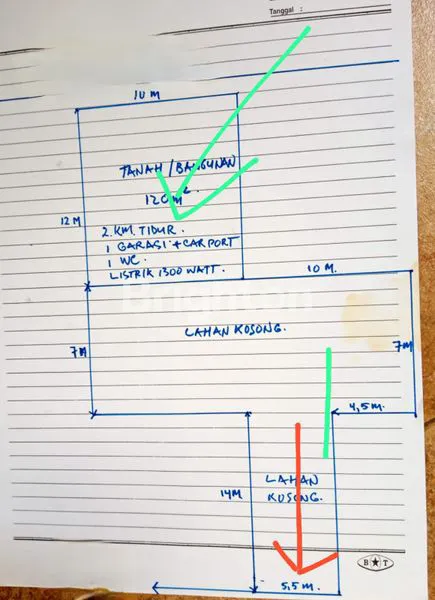 Tanggal :
10 M
TANAH / BANGUNAN
120 M².
12 M
2. KM. TIDUR.
1 GARASI + CARPORT
1 WC.
LISTRIK 1300 WATT.
10 M.
Brighton
LAHAN KOSONG.
7M
7M
4,5 M.
LAHAN
KOSONG.
14M
5,5 M.
B T